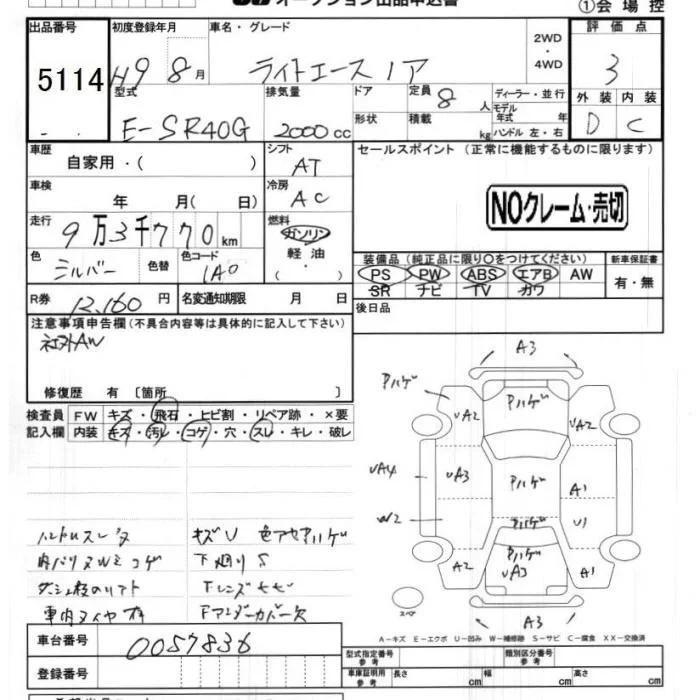 オークション出品申込書
①会場控
出品番号 初度登録年月 車名・グレード 2WD・4WD 評価点
5114 H9 8月 ライトエースノア 3
型式 排気量 ドア 定員 8人 ディーラー・並行 外装 内装
E-SR40G 2000cc 形状 積載 kg モデル年式 年 ハンドル 左・右 D C
車歴 自家用・( ) シフト AT セールスポイント (正常に機能するものに限ります)
車検 年 月( 日) 冷房 AC
NOクレーム・売切
走行 9万3千770km 燃料 ガソリン 軽油 ( ・ )
色 シルバー 色替 色コード 1A0
装備品 (純正品に限り○をつけてください) 新車保証書
PS PW ABS エアB AW 有・無
SR ナビ TV カワ
R券 12,160円 名変通知期限 月 日
後日品
注意事項申告欄(不具合内容等は具体的に記入して下さい)
社外AW
修復歴 有 〔箇所 〕
検査員記入欄 FW キズ・飛石・ヒビ割・リペア跡・×要
内装 キズ・汚レ・コゲ・穴・スレ・キレ・破レ
A3
Pハゲ Pハゲ
UA2 UA2
UA4 UA3 Pハゲ A1
W2 Pハゲ U1
Pハゲ
A2 UA3 A1
A3
スペア
ハンドルスレ キズU
下廻りS
A-キズ E-エクボ U-凹み W-補修跡 S-サビ C-腐食 XX-交換済
車台番号 0057836
登録番号
型式指定番号 参考 類別区分番号 参考
車庫証明用 参考 長さ cm 幅 cm 高さ cm